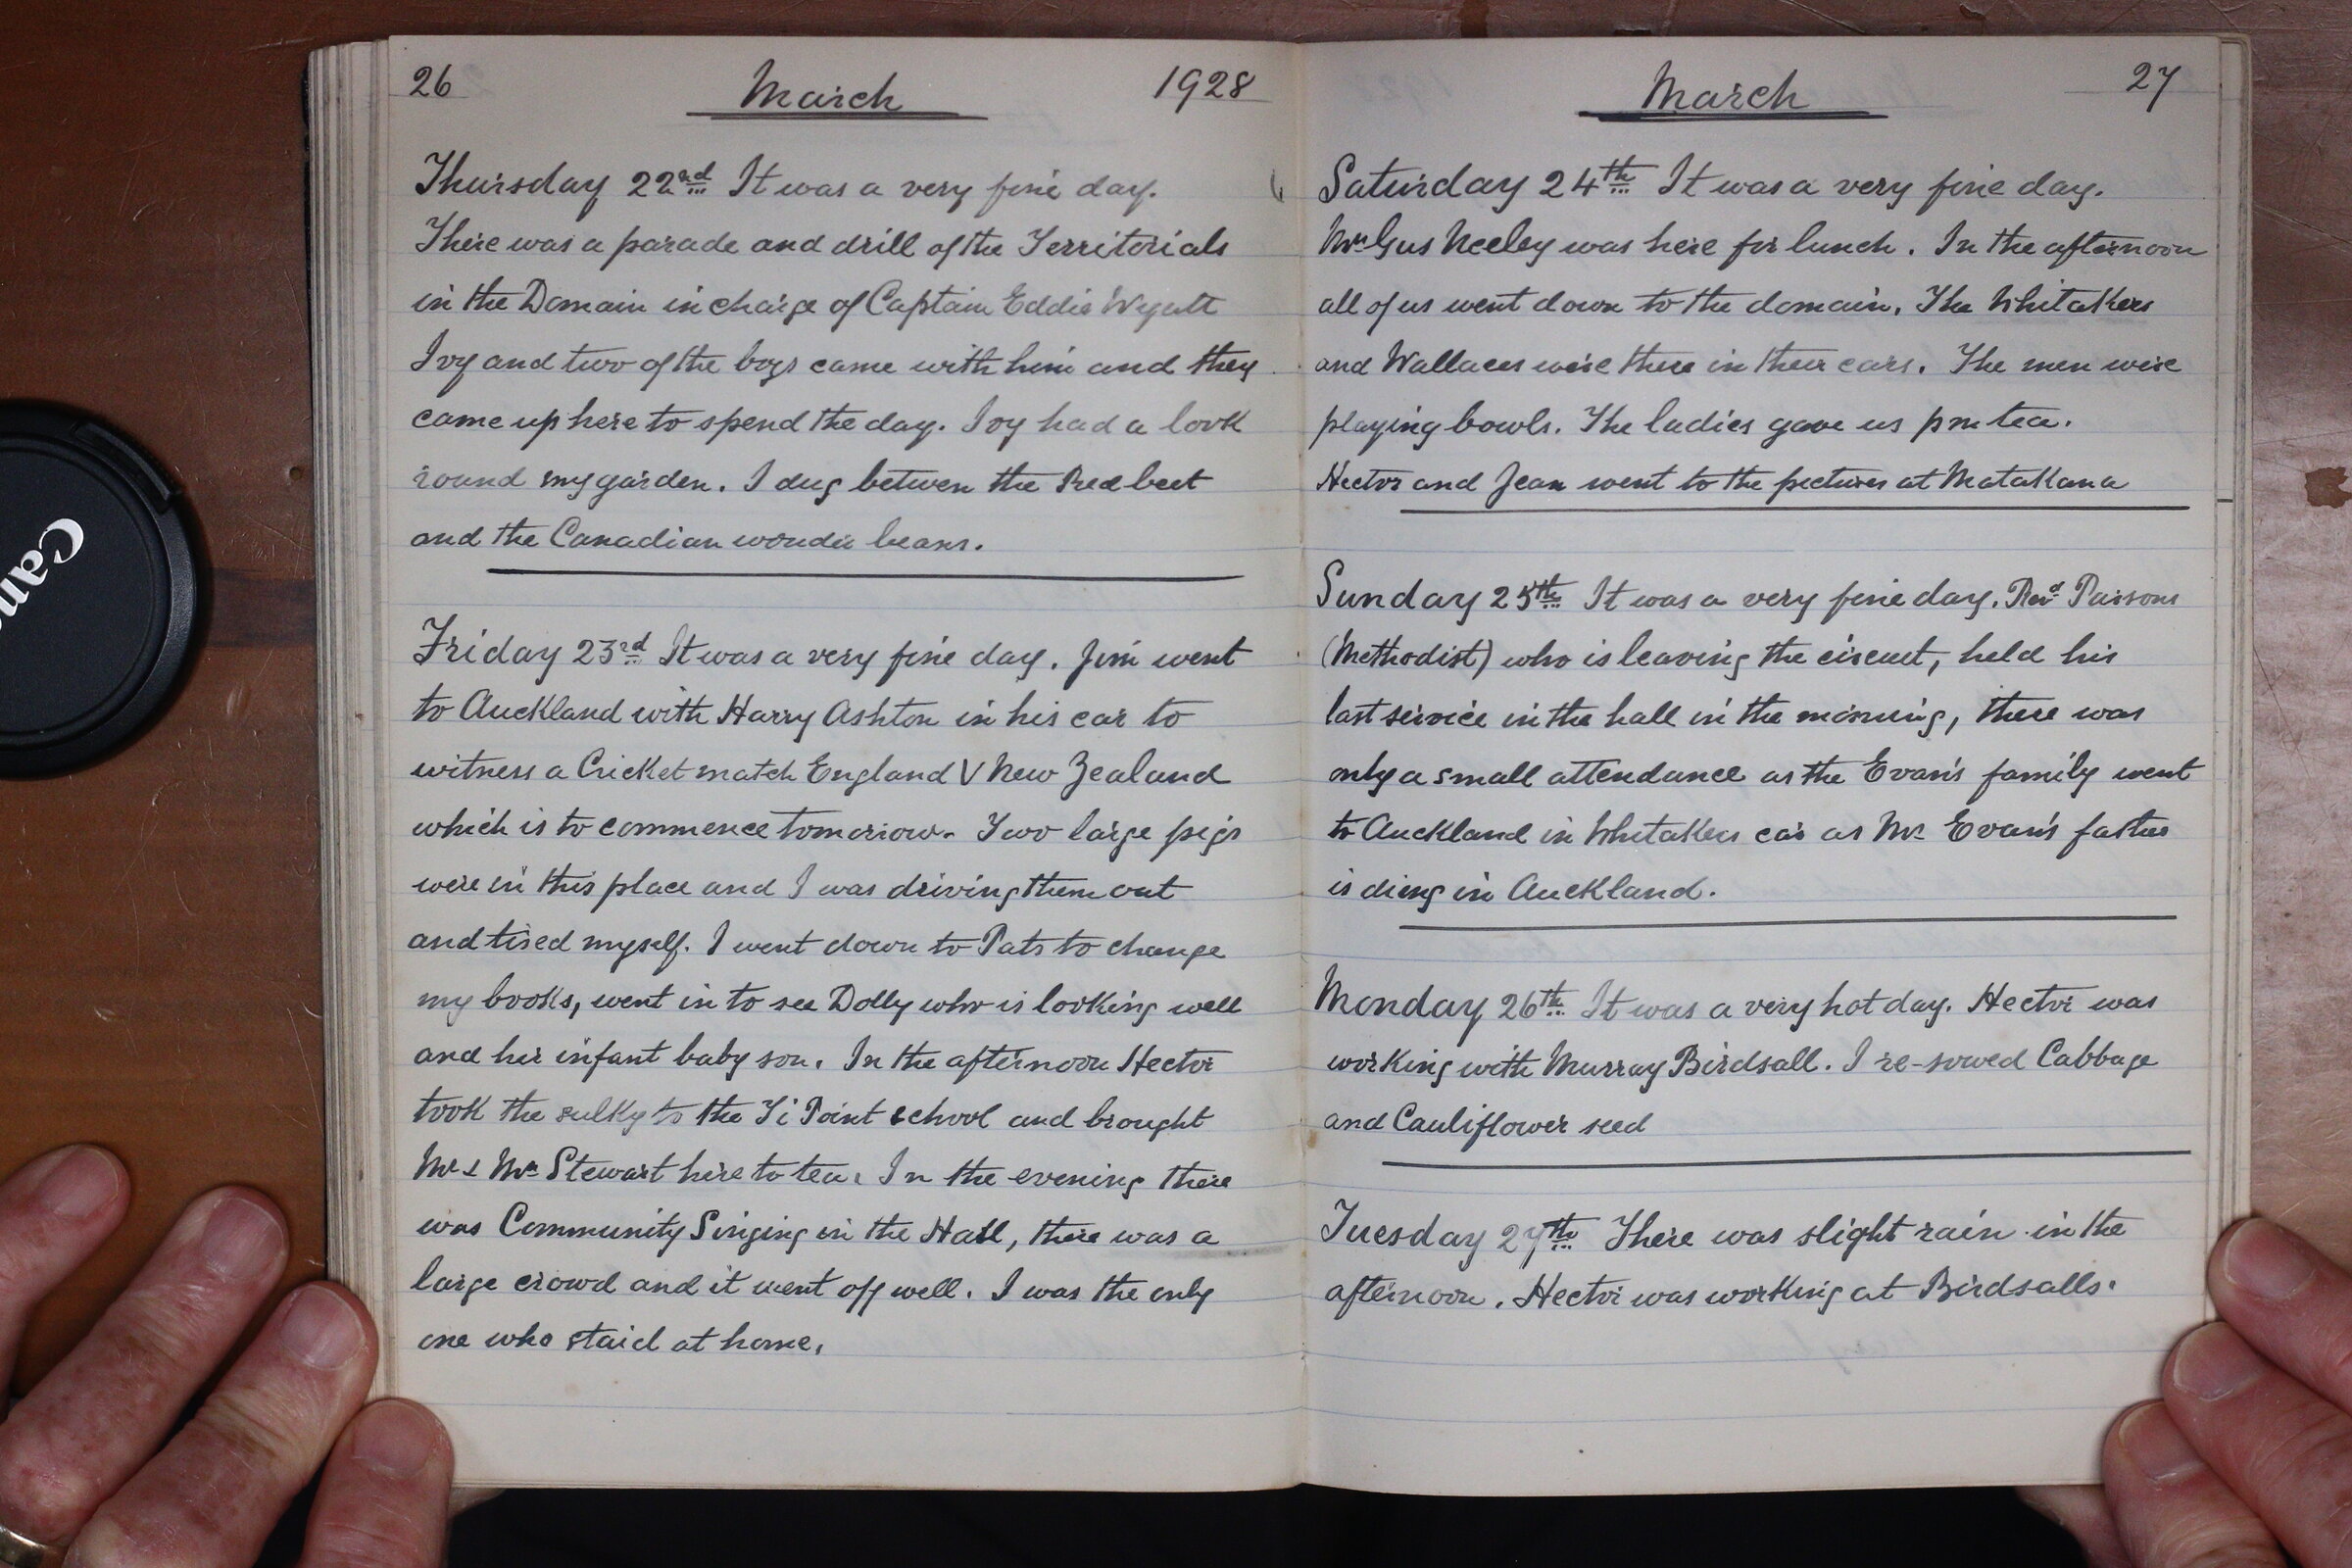 26 March 1928
Thursday 22nd It was a very fine day.
There was a parade and drill of the Territorials
in the Domain in charge of Captain Eddie Wyatt
Ivy and two of the boys came with him and they
came up here to spend the day. Ivy had a look
round my garden. I dug betwen the Red beet
and the Canadian wonder beans.
Friday 23rd It was a very fine day. Jim went
to Auckland with Harry Ashton in his car to
witness a Cricket match England V New Zealand
which is to commence tomorrow. Two large pigs
were in this place and I was driving them out
and tired myself. I went down to Pats to change
my books, went in to see Dolly who is looking well
and her infant baby son. In the afternoon Hector
took the sulky to the Ti Point school and brought
Mr & Mrs Stewart here to tea. In the evening there
was Community Singing in the Hall, there was a
large crowd and it went off well. I was the only
one who staid at home.
March 27
Saturday 24th It was a very fine day.
Mrs Gus Neeley was here for lunch. In the afternoon
all of us went down to the domain. The Whitakers
and Wallaces were there in their cars. The men were
playing bowls. The ladies gave us pm tea.
Hector and Jean went to the pictures at Matakana
Sunday 25th It was a very fine day. Revd Parsons
(Methodist) who is leaving the circuit, held his
last service in the hall in the morning, there was
only a small attendance as the Evan's family went
to Auckland in Whitakers car as Mr Evan's father
is dieng in Auckland.
Monday 26th It was a very hot day. Hector was
working with Murray Birdsall. I re-sowed Cabbage
and Cauliflower seed
Tuesday 27th There was slight rain in the
afternoon. Hector was working at Birdsalls.